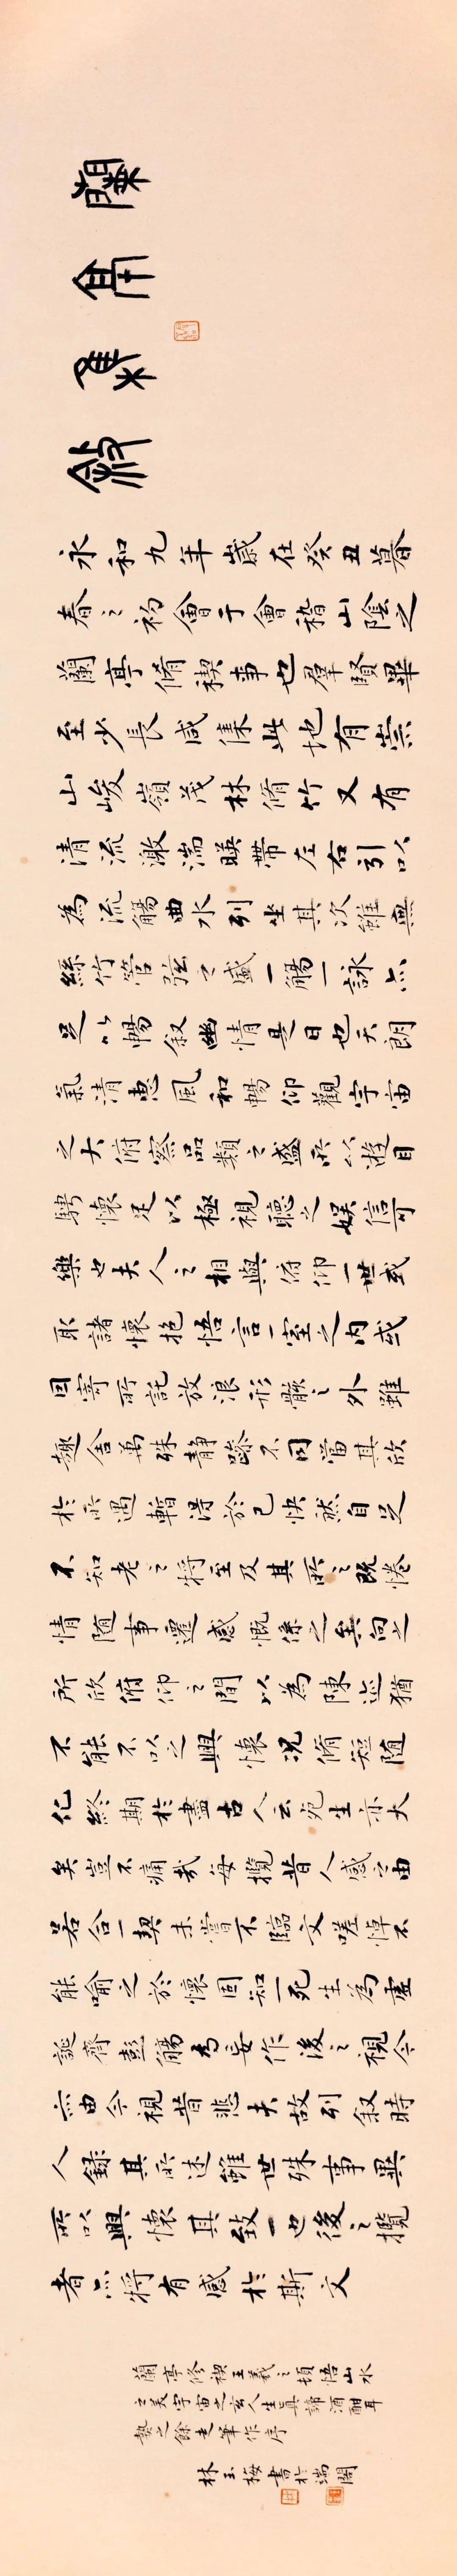 蘭亭集敘
永和九年歲在癸丑暮
春之初會于會稽山陰之
蘭亭脩禊事也羣賢畢
至少長咸集此地有崇
山峻嶺茂林脩竹又有
清流激湍暎帶左右引以
為流觴曲水列坐其次雖無
絲竹管弦之盛一觴一詠亦
足以暢叙幽情是日也天朗
氣清惠風和暢仰觀宇宙
之大俯察品類之盛所以遊目
騁懷足以極視聽之娛信可
樂也夫人之相與俯仰一世或
取諸懷抱悟言一室之內或
因寄所託放浪形骸之外雖
趣舍萬殊静躁不同當其欣
於所遇暫得於己快然自足
不知老之將至及其所之既惓
情随事遷感慨係之矣向之
所欣俯仰之間以為陳迹猶
不能不以之興懷況脩短随
化終期於盡古人云死生亦大
矣豈不痛哉每攬昔人感之由
若合一契未嘗不臨文嗟悼不
能喻之於懷固知一死生為虛
誕齊彭殤為妄作後之視今
亦由今視昔悲夫故列叙時
人錄其所述雖世殊事異
所以興懷其致一也後之攬
者亦將有感於斯文
蘭亭修禊王羲之頓悟山水
之美宇宙之玄人生真諦酒酣耳
熱之餘走筆作序
林玉梅書於端閣